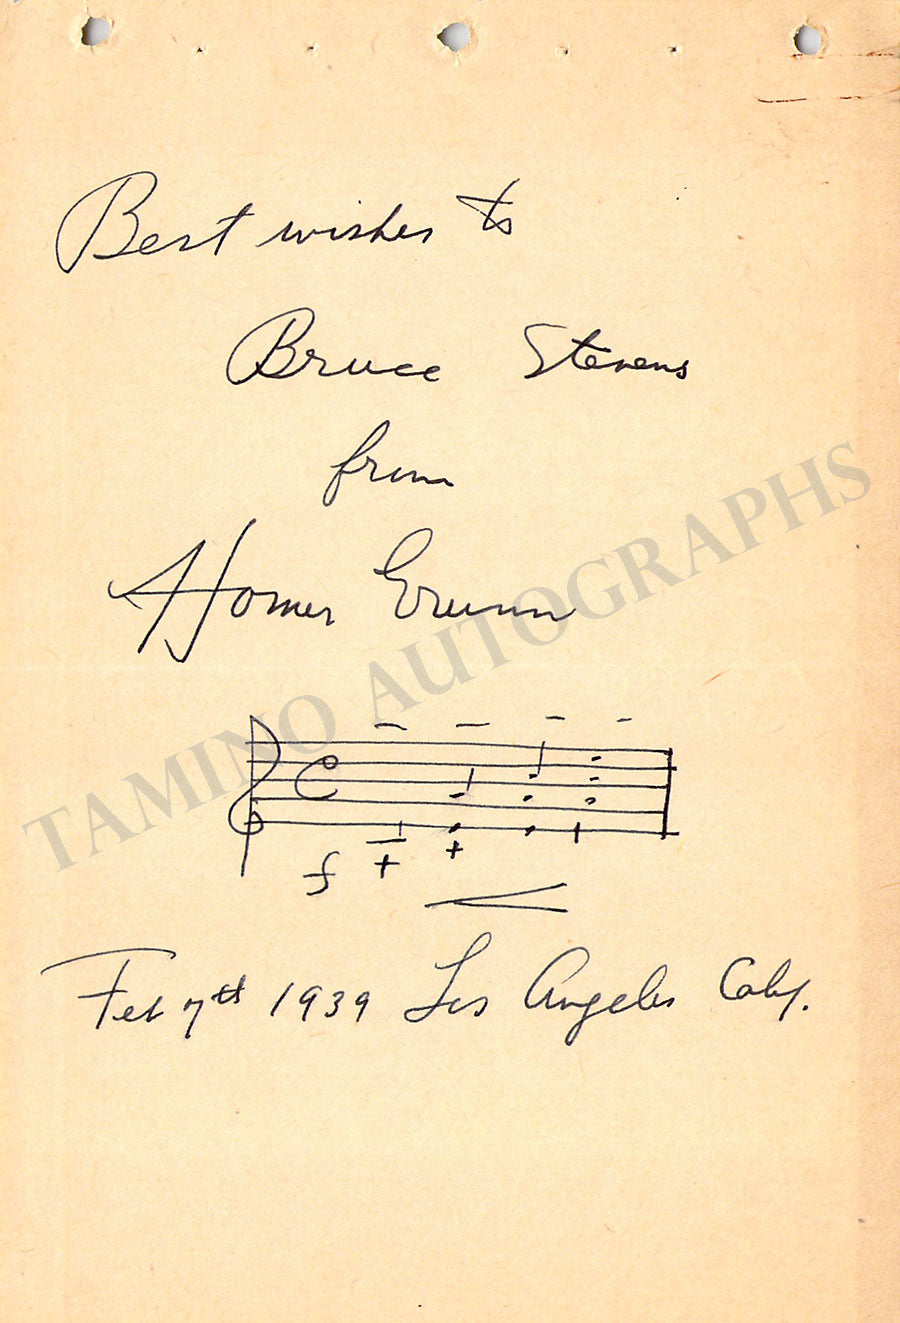 Best wishes to
Bruce Stevens
from
Homer Grunn
TAMINO AUTOGRAPHS
C
f
Feb 7th 1939 Los Angeles Calif.